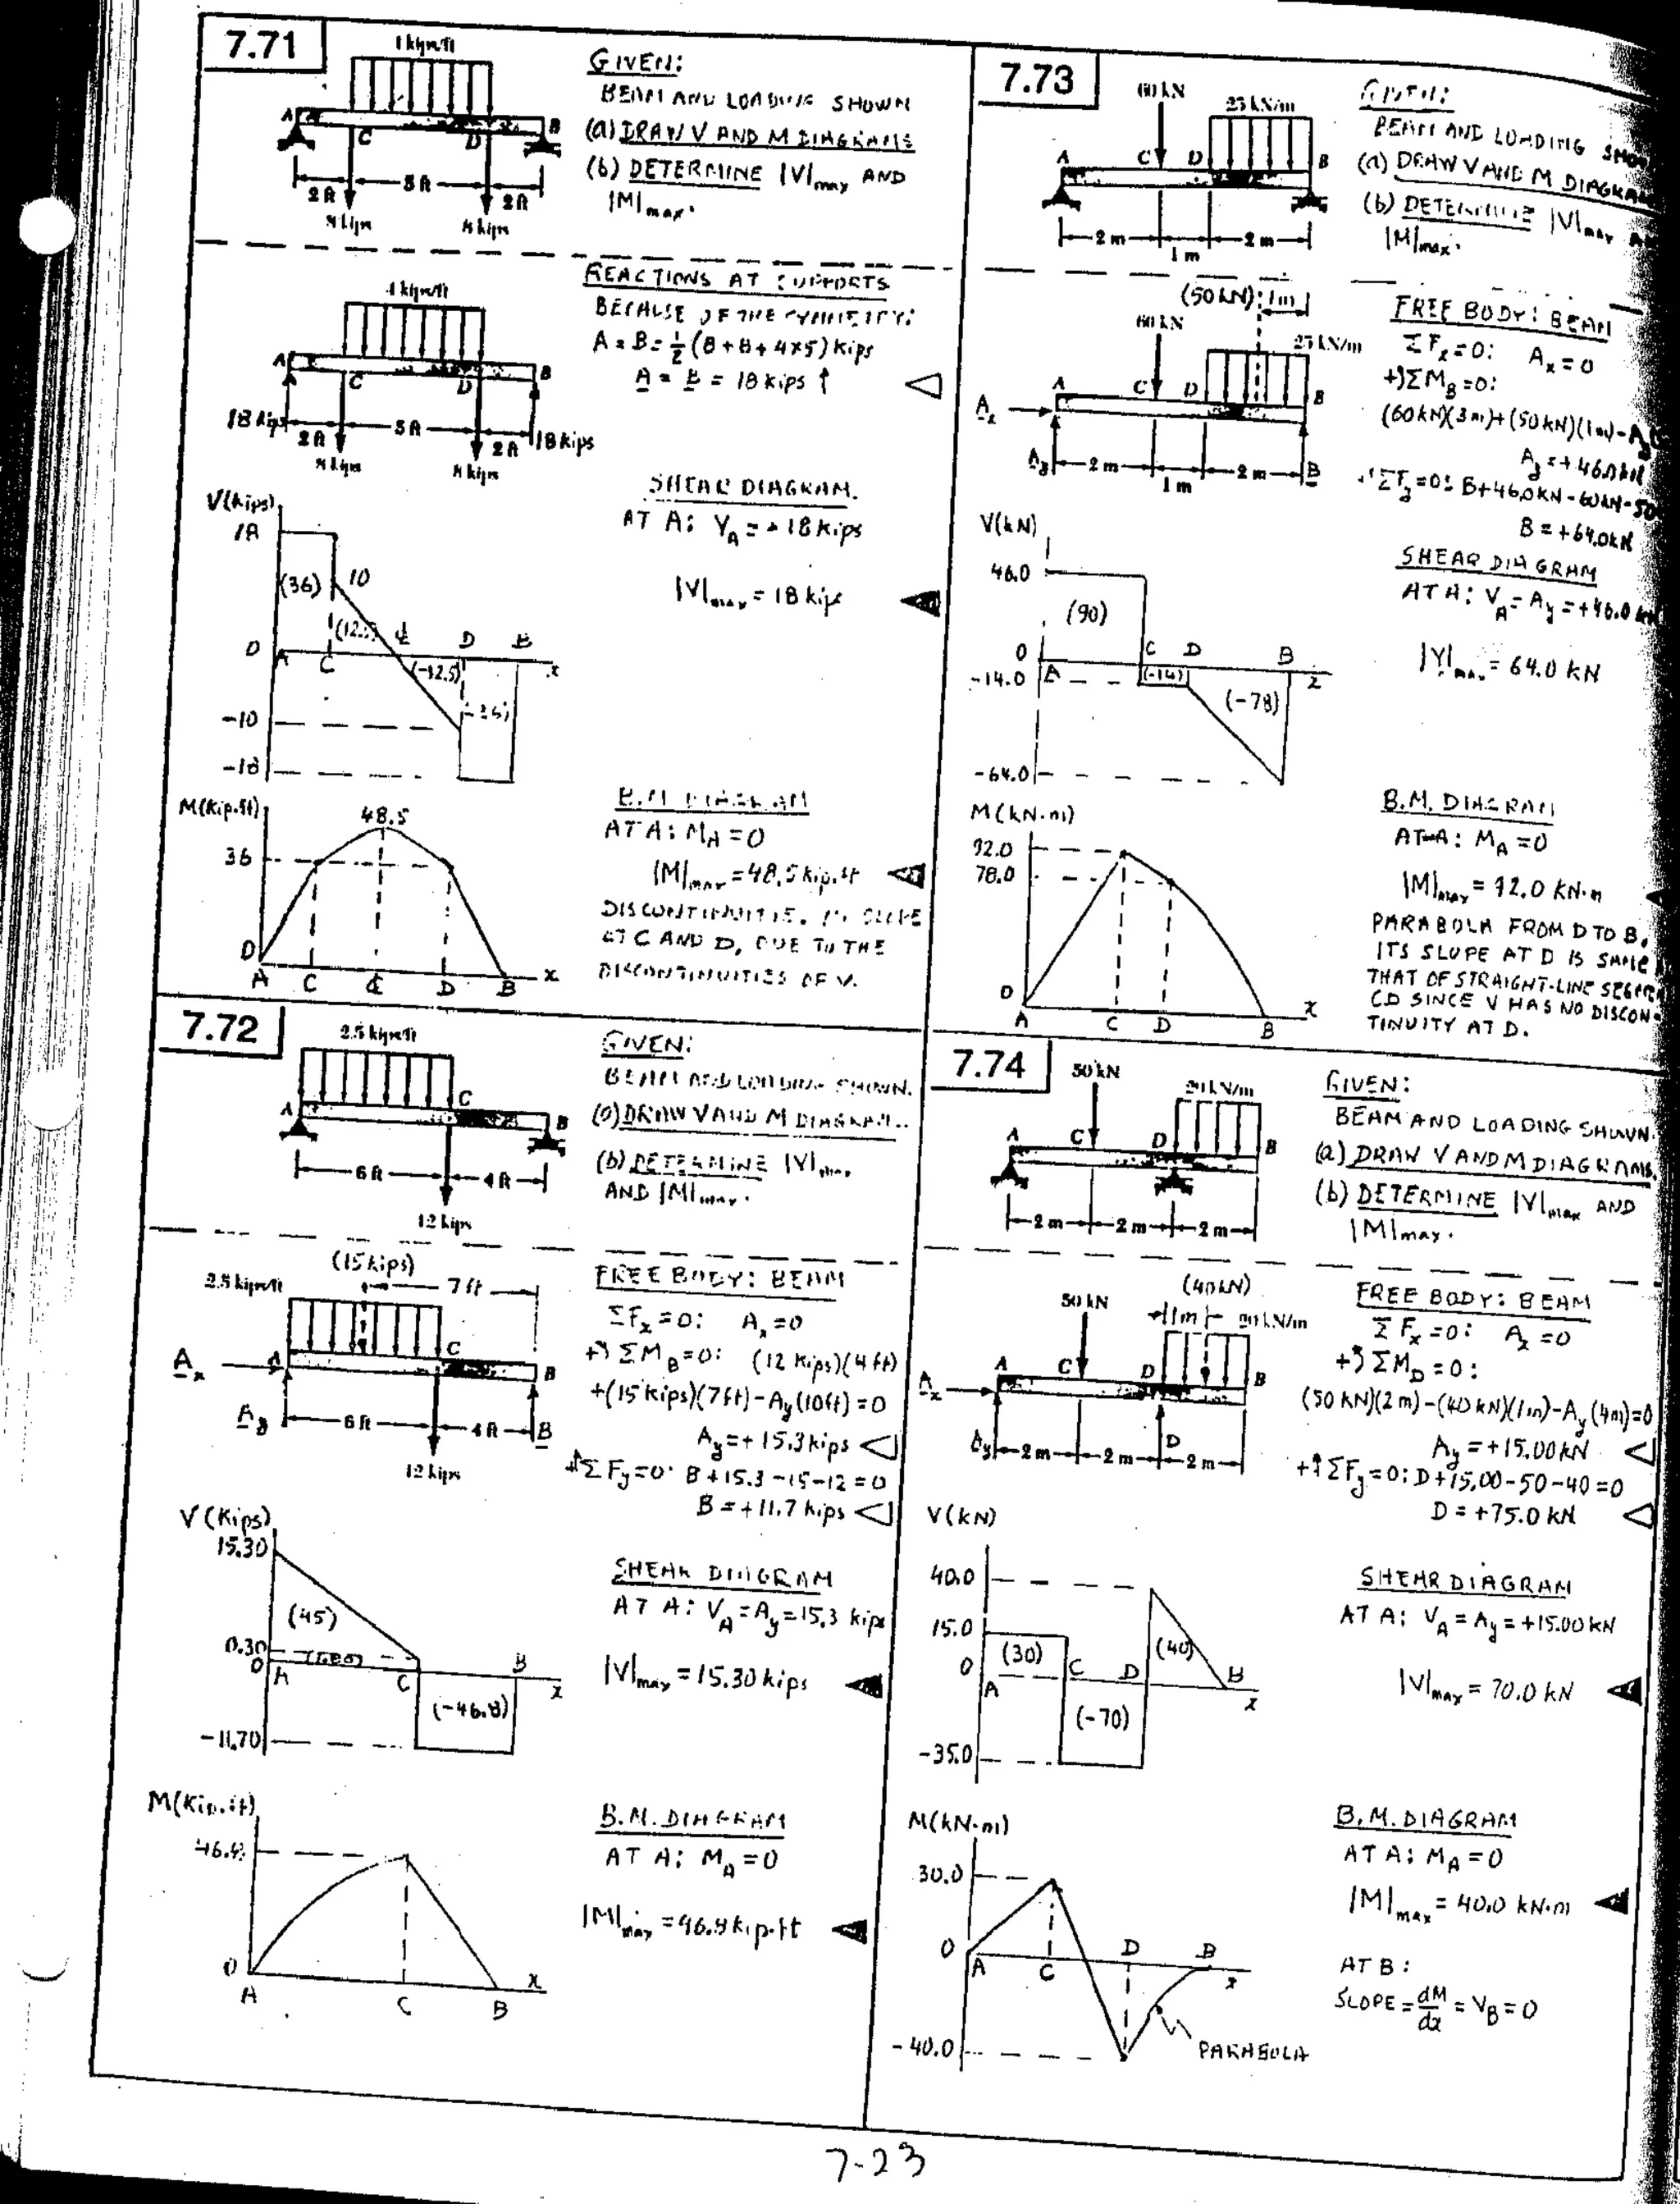 7.71
GIVEN:
BEAM AND LOADING SHOWN
(a) DRAW V AND M DIAGRAMS
(b) DETERMINE |V|max AND
|M|max.
A
C
D
B
2 ft
5 ft
2 ft
8 kips
8 kips
REACTIONS AT SUPPORTS
BECAUSE OF THE SYMMETRY:
A = B = ½ (8 + 8 + 4×5) kips
A = B = 18 kips ↑
A
C
D
B
18 kips
2 ft
5 ft
2 ft
18 kips
8 kips
8 kips
SHEAR DIAGRAM.
AT A: VA = + 18 kips
|V|max = 18 kips
V(kips)
18
(36)
10
(12.5)
℄
D
B
0
A
C
(-12.5)
x
-10
-18
B.M. DIAGRAM
AT A: MA = 0
|M|max = 48.5 kip.ft
DISCONTINUITIES IN SLOPE
AT C AND D, DUE TO THE
DISCONTINUITIES OF V.
M(kip.ft)
48.5
36
0
A
C
℄
D
B
x
7.72
2.5 kips/ft
GIVEN:
BEAM AND LOADING SHOWN.
(a) DRAW V AND M DIAGRAMS.
(b) DETERMINE |V|max
AND |M|max.
A
C
B
6 ft
4 ft
12 kips
(15 kips)
2.5 kips/ft
7 ft
FREE BODY: BEAM
ΣFx = 0: Ax = 0
+↺ ΣMB = 0: (12 kips)(4 ft)
+(15 kips)(7 ft) - Ay(10 ft) = 0
Ay = + 15.3 kips
+↑ΣFy = 0: B + 15.3 - 15 - 12 = 0
B = + 11.7 kips
Ax
A
C
B
Ay
6 ft
4 ft
B
12 kips
V (kips)
15.30
(45)
0.30
0
A
C
B
x
(-46.8)
-11.70
SHEAR DIAGRAM
AT A: VA = Ay = 15.3 kips
|V|max = 15.30 kips
M(kip.ft)
46.8
0
A
C
B
x
B.M. DIAGRAM
AT A: MA = 0
|M|max = 46.8 kip.ft
7.73
60 kN
25 kN/m
GIVEN:
BEAM AND LOADING
(a) DRAW V AND M DIAGRAMS
(b) DETERMINE |V|max
|M|max.
A
C
D
B
2 m
1 m
2 m
(50 kN)
1m
60 kN
25 kN/m
FREE BODY: BEAM
ΣFx = 0: Ax = 0
+↺ΣMB = 0:
(60 kN)(3 m) + (50 kN)(1 m) -
Ay = + 46.0 kN
+↑ΣFy = 0: B + 46.0 kN - 60 kN - 50
B = + 64.0 kN
Ax
A
C
D
B
Ay
2 m
1 m
2 m
B
V(kN)
46.0
(90)
0
A
C
D
B
x
-14.0
(-14)
(-78)
-64.0
SHEAR DIAGRAM
AT A: VA = Ay = +46.0 kN
|V|max = 64.0 kN
M(kN.m)
92.0
78.0
0
A
C
D
B
x
B.M. DIAGRAM
AT A: MA = 0
|M|max = 92.0 kN.m
PARABOLA FROM D TO B.
ITS SLOPE AT D IS SAME
THAT OF STRAIGHT-LINE
CD SINCE V HAS NO DISCON-
TINUITY AT D.
7.74
50 kN
20 kN/m
GIVEN:
BEAM AND LOADING SHOWN.
(a) DRAW V AND M DIAGRAMS.
(b) DETERMINE |V|max AND
|M|max.
A
C
D
B
2 m
2 m
2 m
(40 kN)
50 kN
1m
20 kN/m
FREE BODY: BEAM
ΣFx = 0: Ax = 0
+↺ ΣMD = 0:
(50 kN)(2 m) - (40 kN)(1 m) - Ay (4 m) = 0
Ay = + 15.00 kN
+↑ΣFy = 0: D + 15.00 - 50 - 40 = 0
D = +75.0 kN
Ax
A
C
D
B
Ay
2 m
2 m
D
2 m
V(kN)
40.0
15.0
(30)
(40)
0
A
C
D
B
x
(-70)
-35.0
SHEAR DIAGRAM
AT A: VA = Ay = +15.00 kN
|V|max = 70.0 kN
M(kN.m)
30.0
0
A
C
D
B
x
-40.0
PARABOLA
B.M. DIAGRAM
AT A: MA = 0
|M|max = 40.0 kN.m
AT B:
SLOPE = dM/dx = VB = 0
7-23